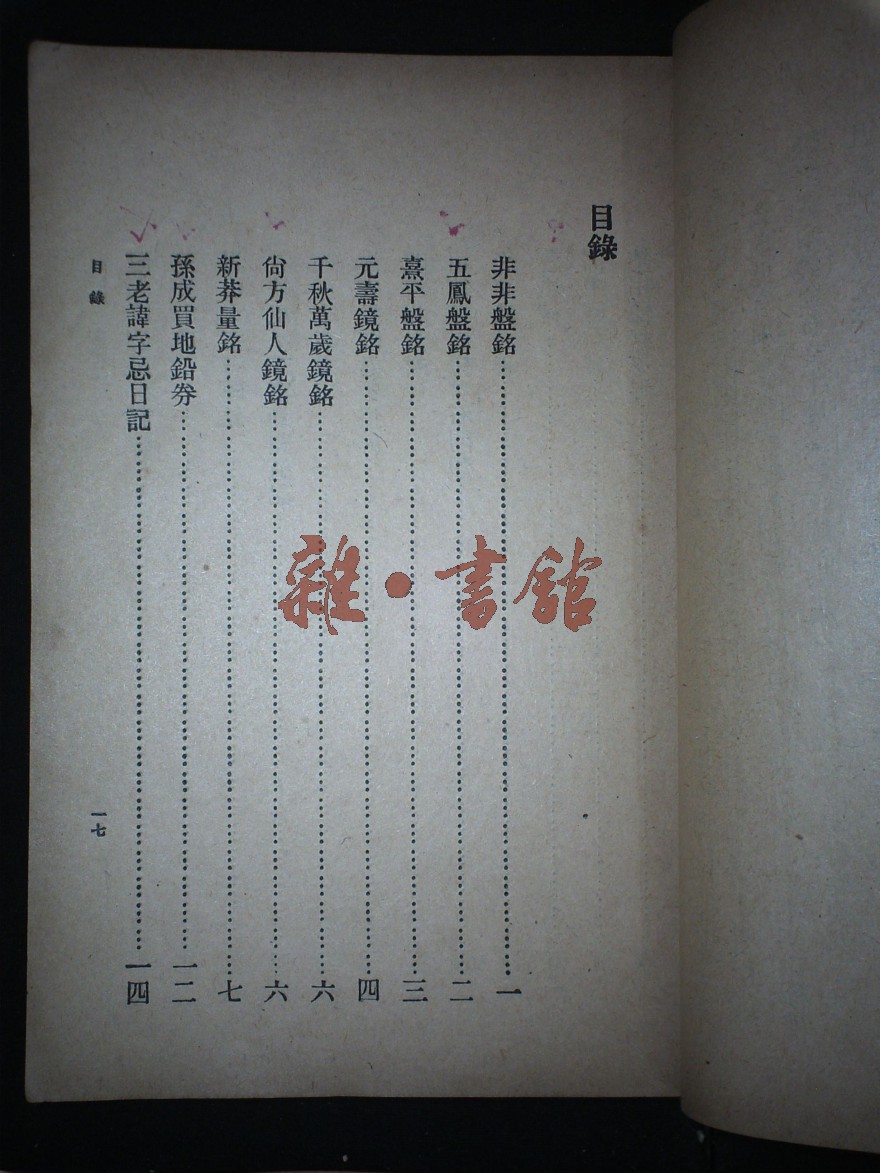 目錄
非非盤銘……一
五鳳盤銘……二
熹平盤銘……三
元壽鏡銘……四
千秋萬歲鏡銘……六
尙方仙人鏡銘……六
新莽量銘……七
孫成買地鉛券……一二
三老諱字忌日記……一四
目錄 一七
雜·書館